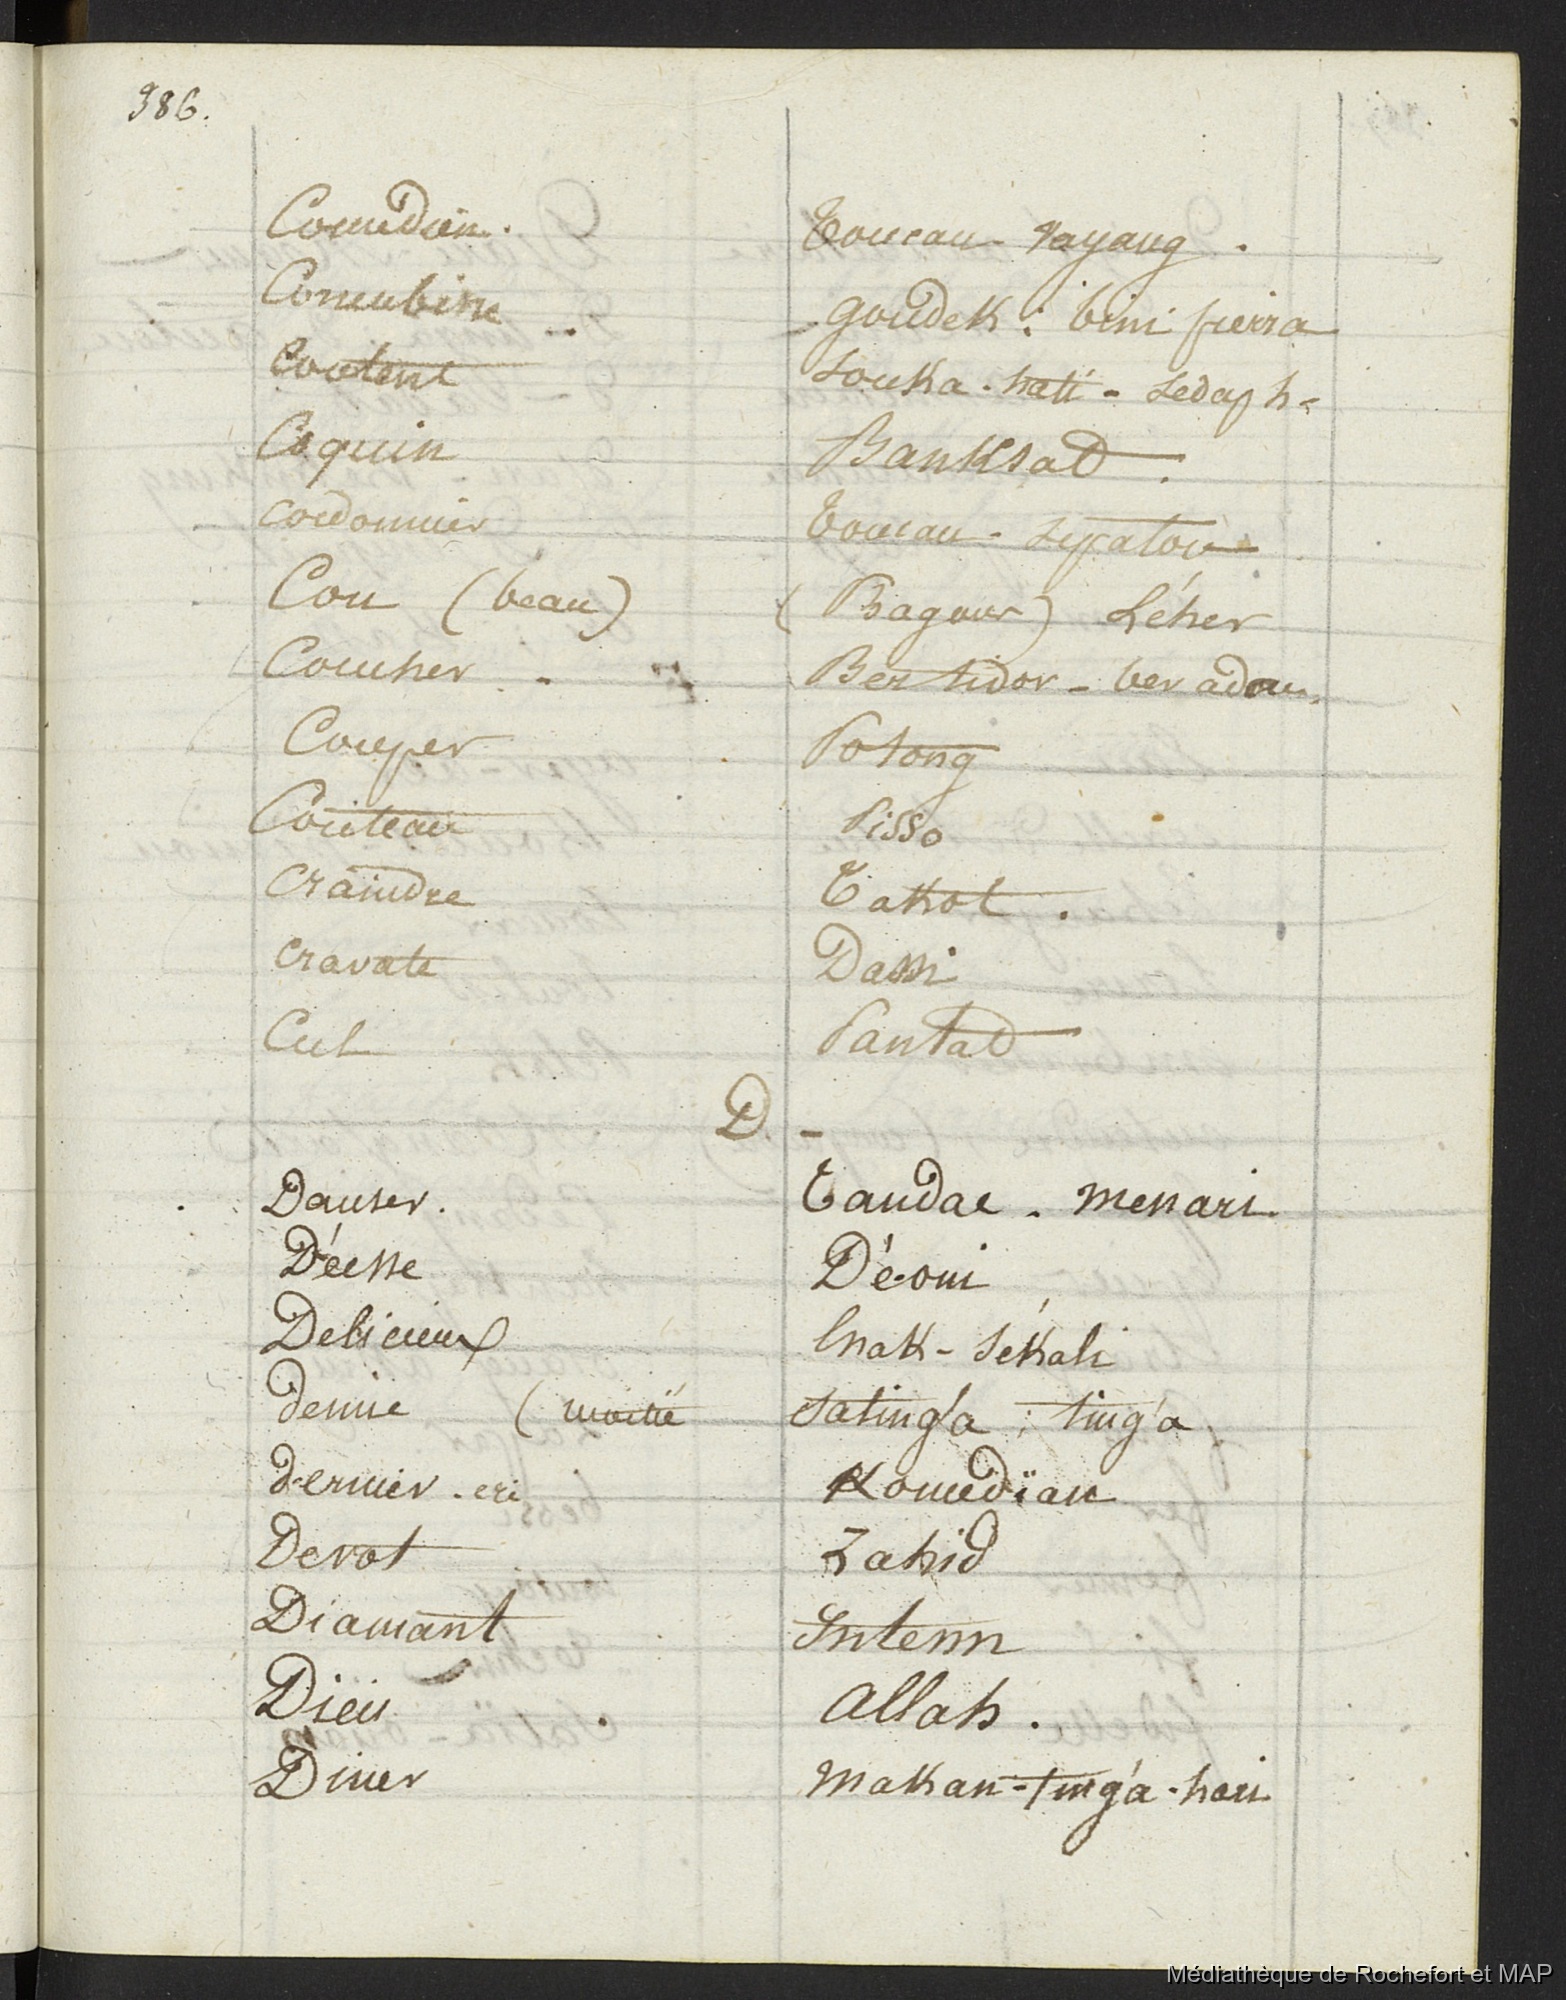 386.
Comedien. Toucan - vayang.
Concubine .. goudek : bini piera
Content Souka - hati - sedaph -
Coquin Banksad.
cordonnier Toucan - sepatou
Cou (beau) (Bagour) Léher
Coucher - Ber tidor - ber adou.
Couper Potong
Couteau Pisso
craindre Takot.
cravate Dassi
Cul Pantad
D -
Danser. Tandac - menari.
Déesse Dé-oui
Delicieux Enak - sékali
demie (moitié satinga ; tinga
dernier - cri Komedïan
Devot Zahid
Diamant Intenn
Dieu allah.
Diner makan - tinga - hari
Médiathèque de Rochefort et MAP